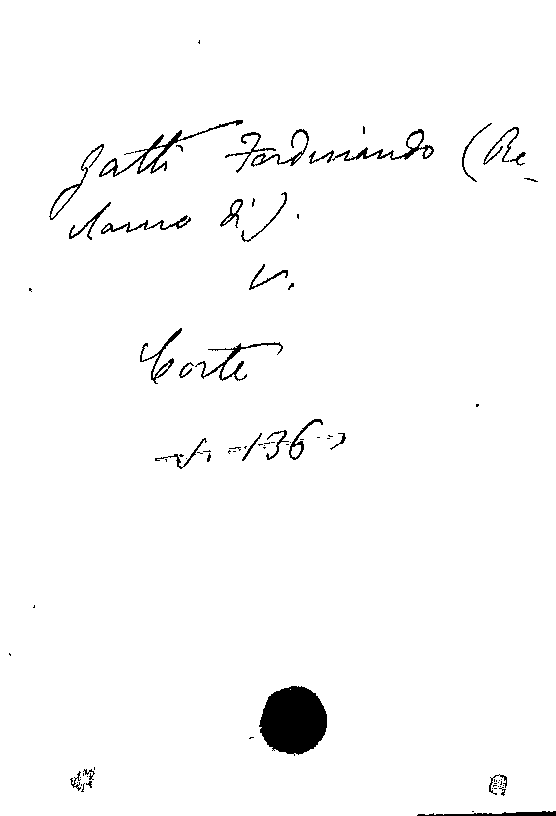 Gatti Ferdinando (Re-
clamo di).
V.
Corte
v. 136